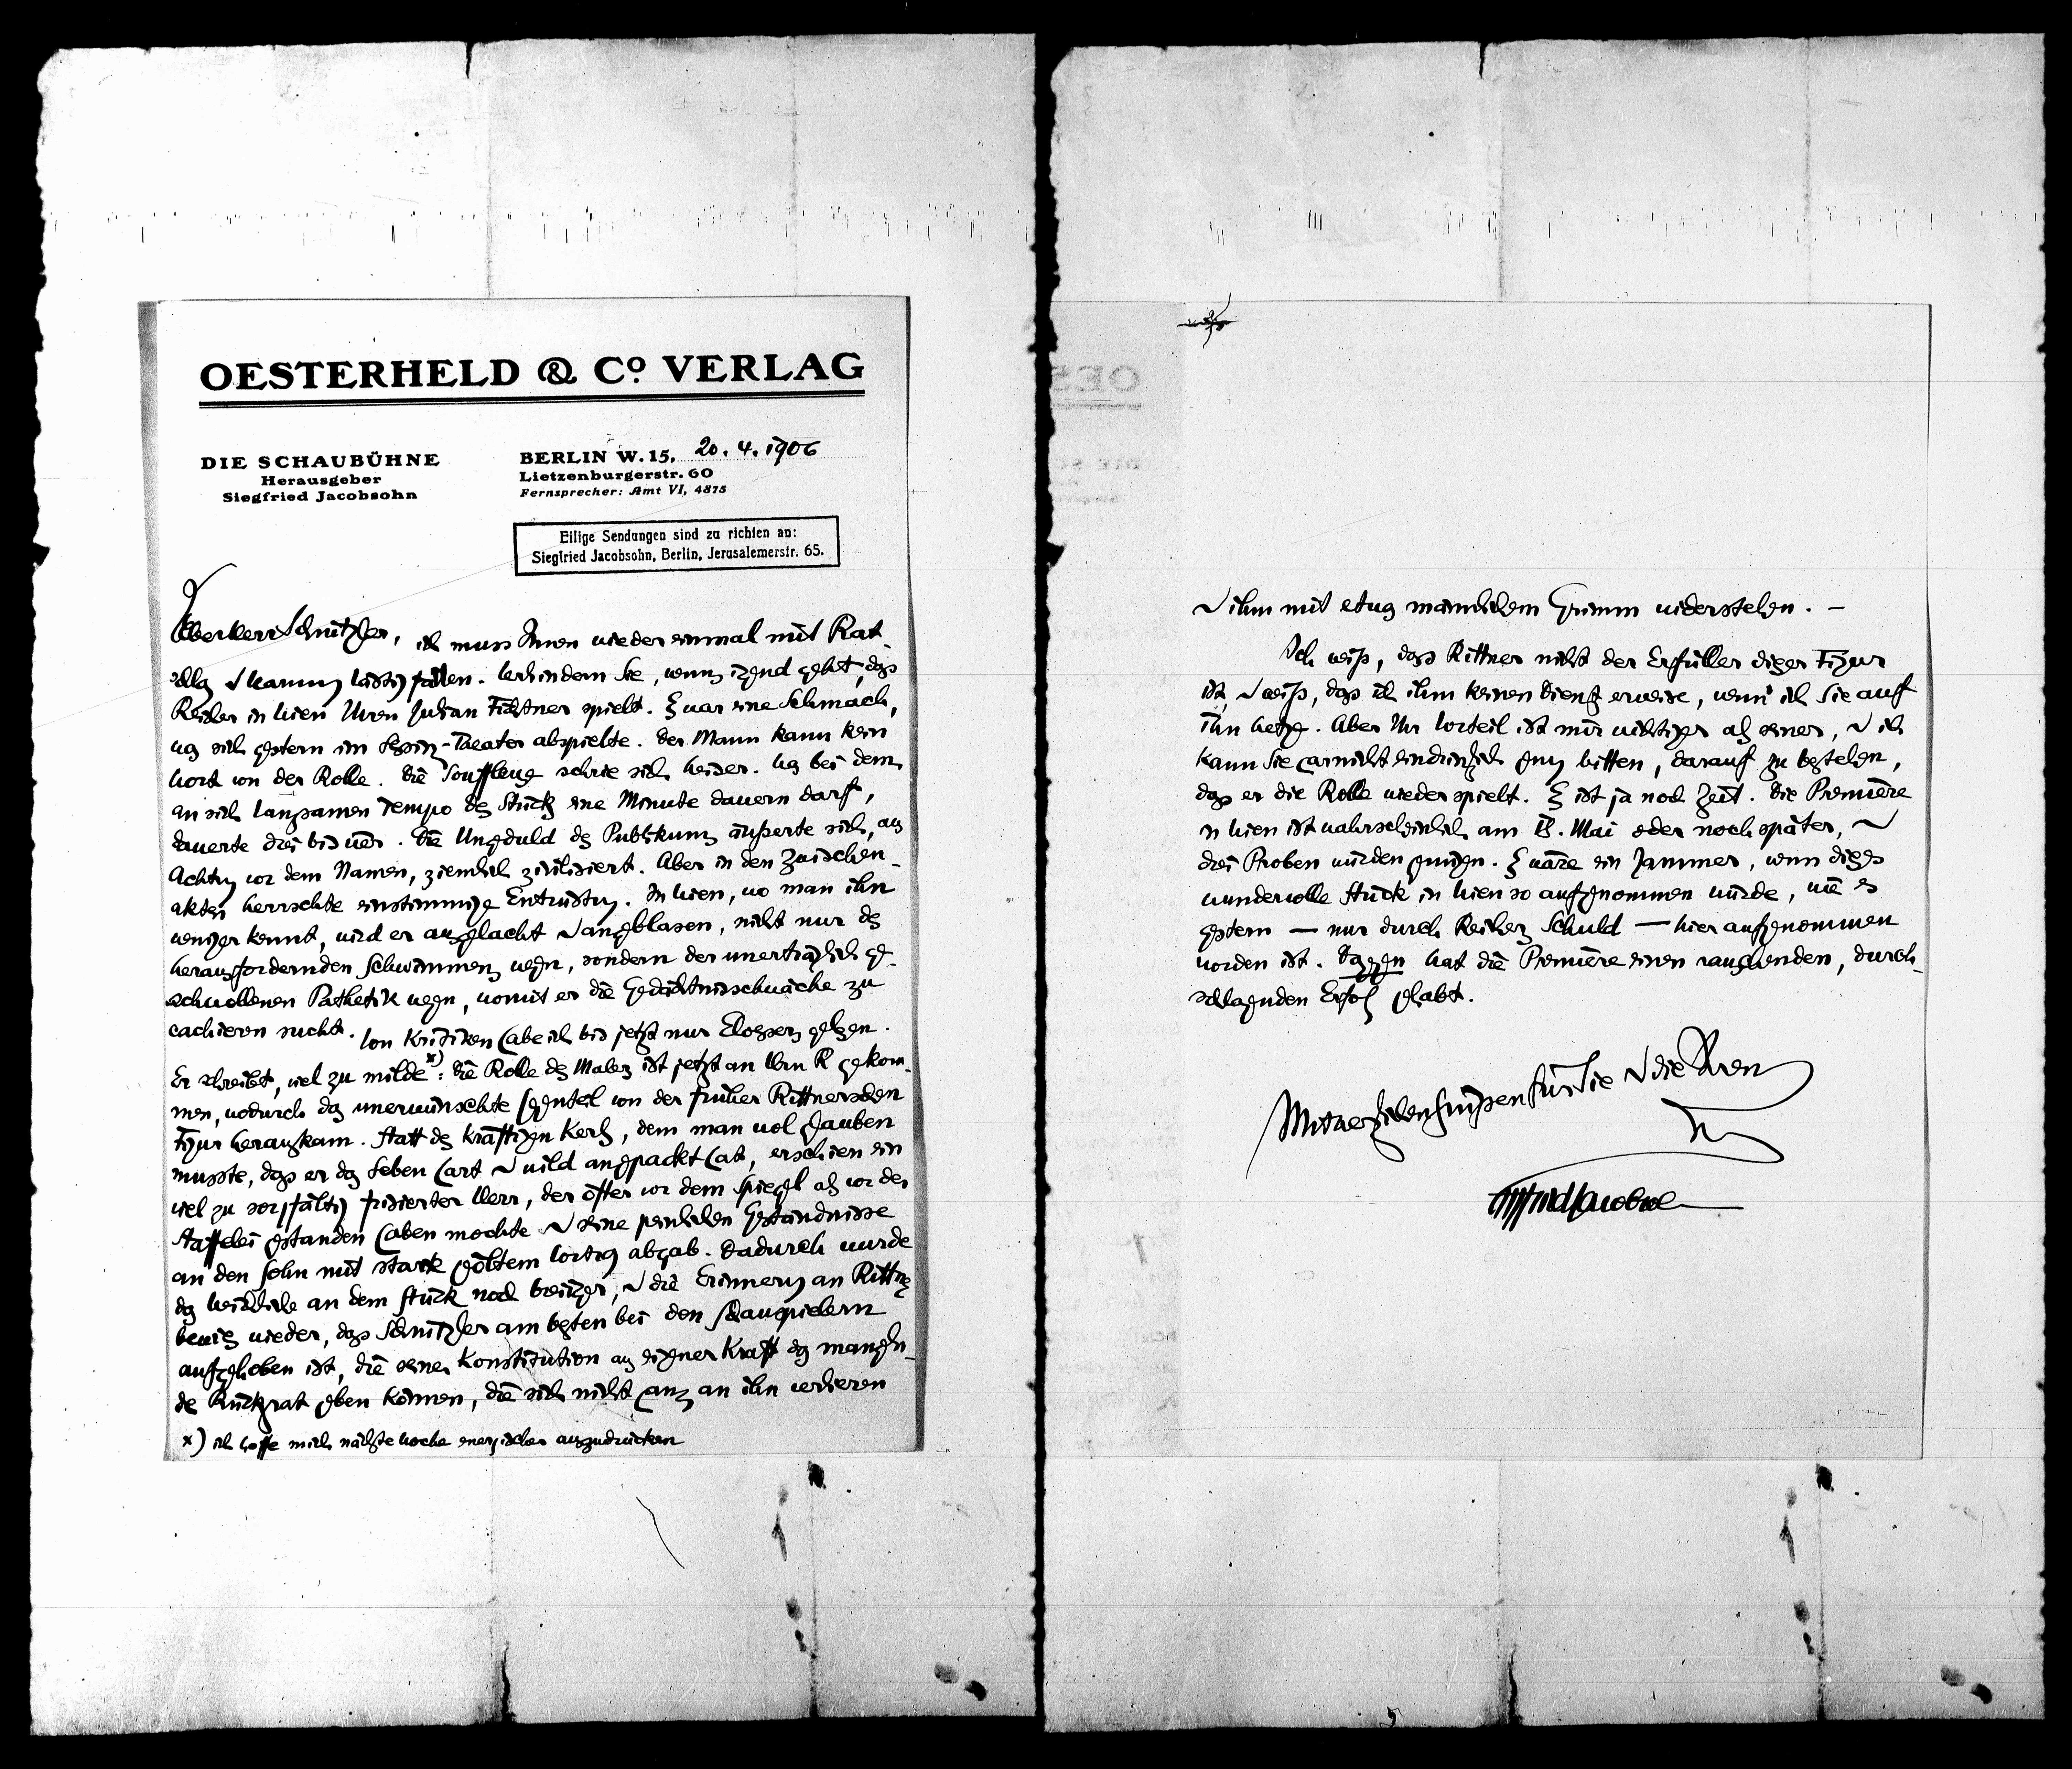 OESTERHELD & Co VERLAG
DIE SCHAUBÜHNE
Herausgeber
Siegfried Jacobsohn
BERLIN W. 15, 20. 4. 1906
Lietzenburgerstr. 60
Fernsprecher: Amt VI, 4875
Eilige Sendungen sind zu richten an:
Siegfried Jacobsohn, Berlin, Jerusalemerstr. 65.
Lieber Herr Schnitzler, ich muss Ihnen wieder einmal mit Rat-
schlag & Warnung lästig fallen. Verhindern Sie, wenns irgend geht, dass
Reicher in Wien Ihren Julian Fichtner spielt. Es war eine Schmach,
was sich gestern im Lessing-Theater abspielte. Der Mann kann kein
Wort von der Rolle. Die Souffleuse schrie sich heiser. Was bei dem
an sich langsamen Tempo des Stücks eine Minute dauern darf,
dauerte drei bis vier. Die Ungeduld des Publikums äusserte sich, aus
Achtung vor dem Namen, ziemlich zivilisiert. Aber in den Zwischen-
akten herrschte einstimmige Entrüstung. In Wien, wo man ihn
weniger kennt, wird er ausgelacht & angeblasen, nicht nur des
herausfordernden Schwimmens wegen, sondern der unerträglich ge-
schwollenen Pathetik wegen, womit er die Gedächtnisschwäche zu
cachieren sucht. Von Kritiken habe ich bis jetzt nur Eloessers gelesen.
Er schreibt, viel zu milde x): Die Rolle des Malers ist jetzt an Hrn R gekom-
men, wodurch das unerwünschte Gegenteil von der früher Rittnerschen
Figur herauskam. Statt des kräftigen Kerls, dem man wol glauben
musste, dass er das Leben hart & wild angepackt hat, erschien ein
viel zu sorgfältig frisierter Herr, der öfter vor dem Spiegel als vor der
Staffelei gestanden haben mochte & seine peinlichen Geständnisse
an den Sohn mit stark geöltem Vortrag abgab. Dadurch wurde
das Weichliche an dem Stück noch breiiger, & die Erinnerung an Rittner
bewies wieder, dass Schnitzler am besten bei den Schauspielern
aufgehoben ist, die seiner Konstitution aus eigner Kraft das mangeln-
de Rückgrat geben können, die sich nicht ganz an ihn verlieren
x) ich hoffe mich nächste Woche energischer auszudrücken
& ihm mit etwas männlichem Grimm widerstehen. —
Ich weiss, dass Rittner nicht der Erfüller dieser Figur
ist, & weiss, dass ich ihm keinen Dienst erweise, wenn ich Sie auf
ihn hetze. Aber Ihr Vorteil ist mir wichtiger als seiner, & ich
kann Sie garnicht eindringlich genug bitten, darauf zu bestehen,
dass er die Rolle wieder spielt. Es ist ja noch Zeit. Die Première
in Wien ist wahrscheinlich am Mai oder noch später, &
drei Proben würden genügen. Es wäre ein Jammer, wenn dieses
wundervolle Stück in Wien so aufgenommen würde, wie es
gestern — nur durch Reichers Schuld — hier aufgenommen
worden ist. Dagegen hat die Première einen rauschenden, durch-
schlagenden Erfolg gehabt.
Mit herzlichen Grüssen für Sie & die Ihren
Ihr
Siegfried Jacobsohn